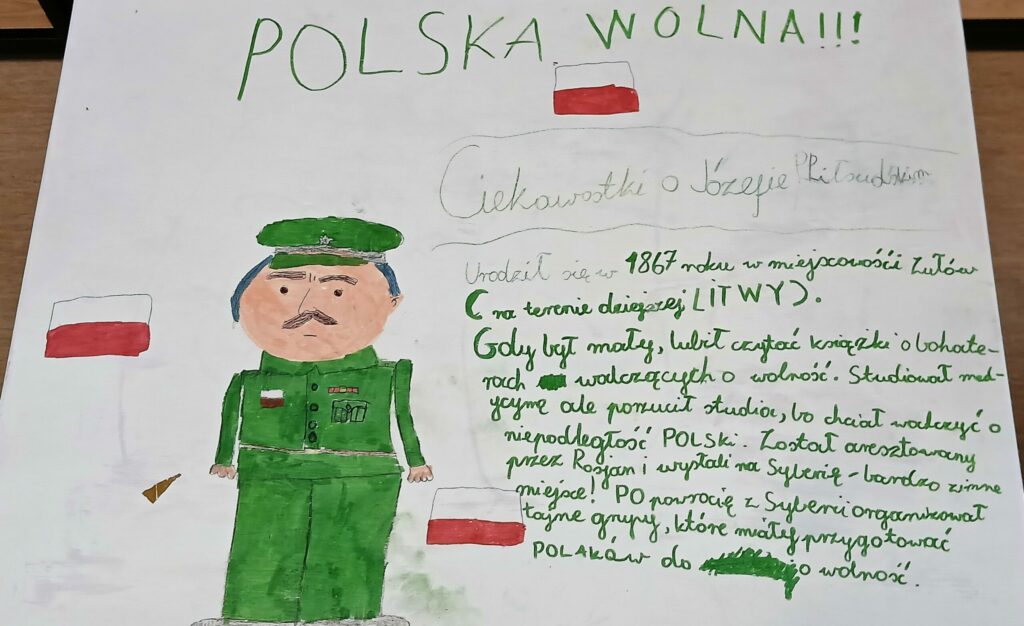 POLSKA WOLNA!!!
Ciekawostki o Józefie Piłsudskim
Urodził się w 1867 roku w miejscowośći Zułów
(na terenie dziejszej LITWY).
Gdy był mały, lubił czytać książki o bohate-
rach walczących o wolność. Studiował med-
ycynę ale porzucił studia, bo chciał walczyć o
niepodległość POLSKI. Został aresztowany
przez Rosjan i wysłali na Syberię - bardzo zimne
miejsce! PO powrocię z Syberii organizował
tajne grupy, które miały przygotować
POLAKÓW do o wolność.